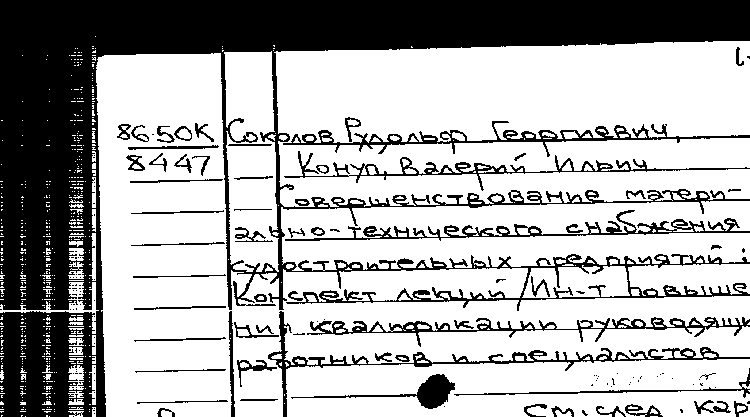 86-50К Соколов, Рудольф Георгиевич,
8447 Конуп, Валерий Ильич
Совершенствование матери-
ально-технического снабжения
судостроительных предприятий :
Конспект лекций / Ин-т повыше
ния квалификации руководящи
работников и специалистов
См. след. кар